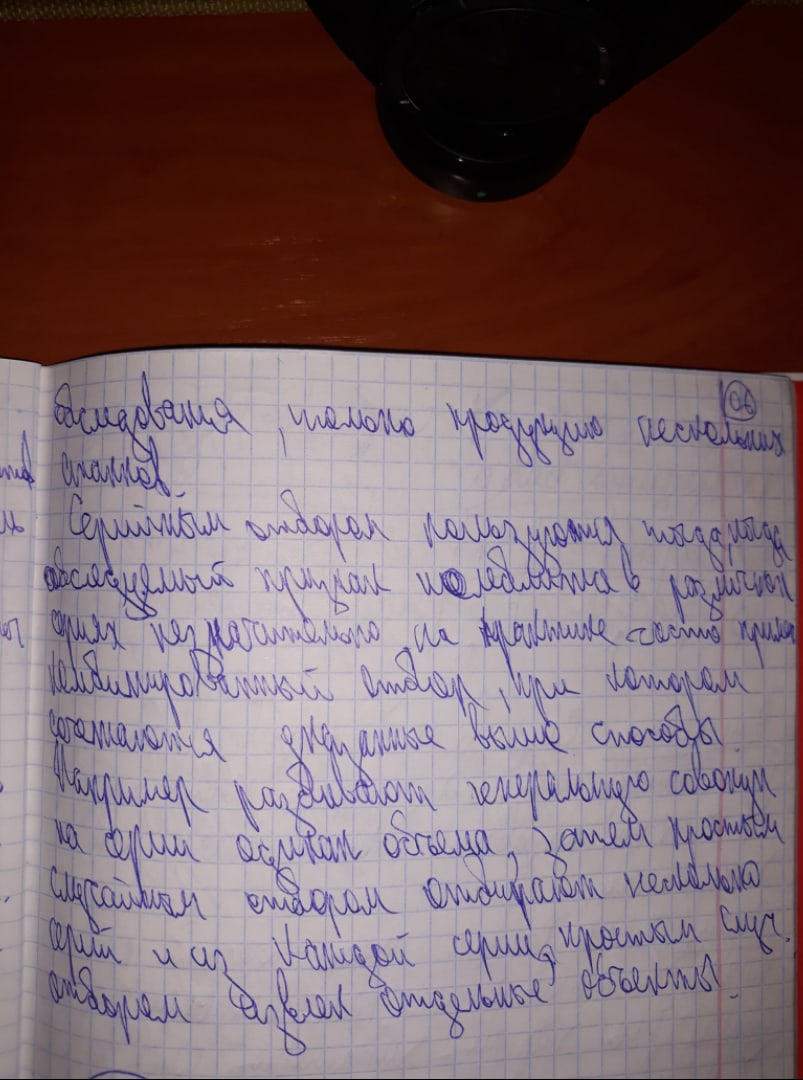 06
обследования, только продукцию нескольких
станков.
Серийным отбором пользуются тогда, когда
обследуемый признак колеблется в различных
сериях незначительно. На практике часто приме
комбинированный отбор, при котором
сочетаются указанные выше способы.
Например разбивают генеральную совокуп
на серии один объема, затем простым
случайным отбором отбирают несколько
серий и из каждой серии, простым случ.
отбором извлек отдельные объекты.